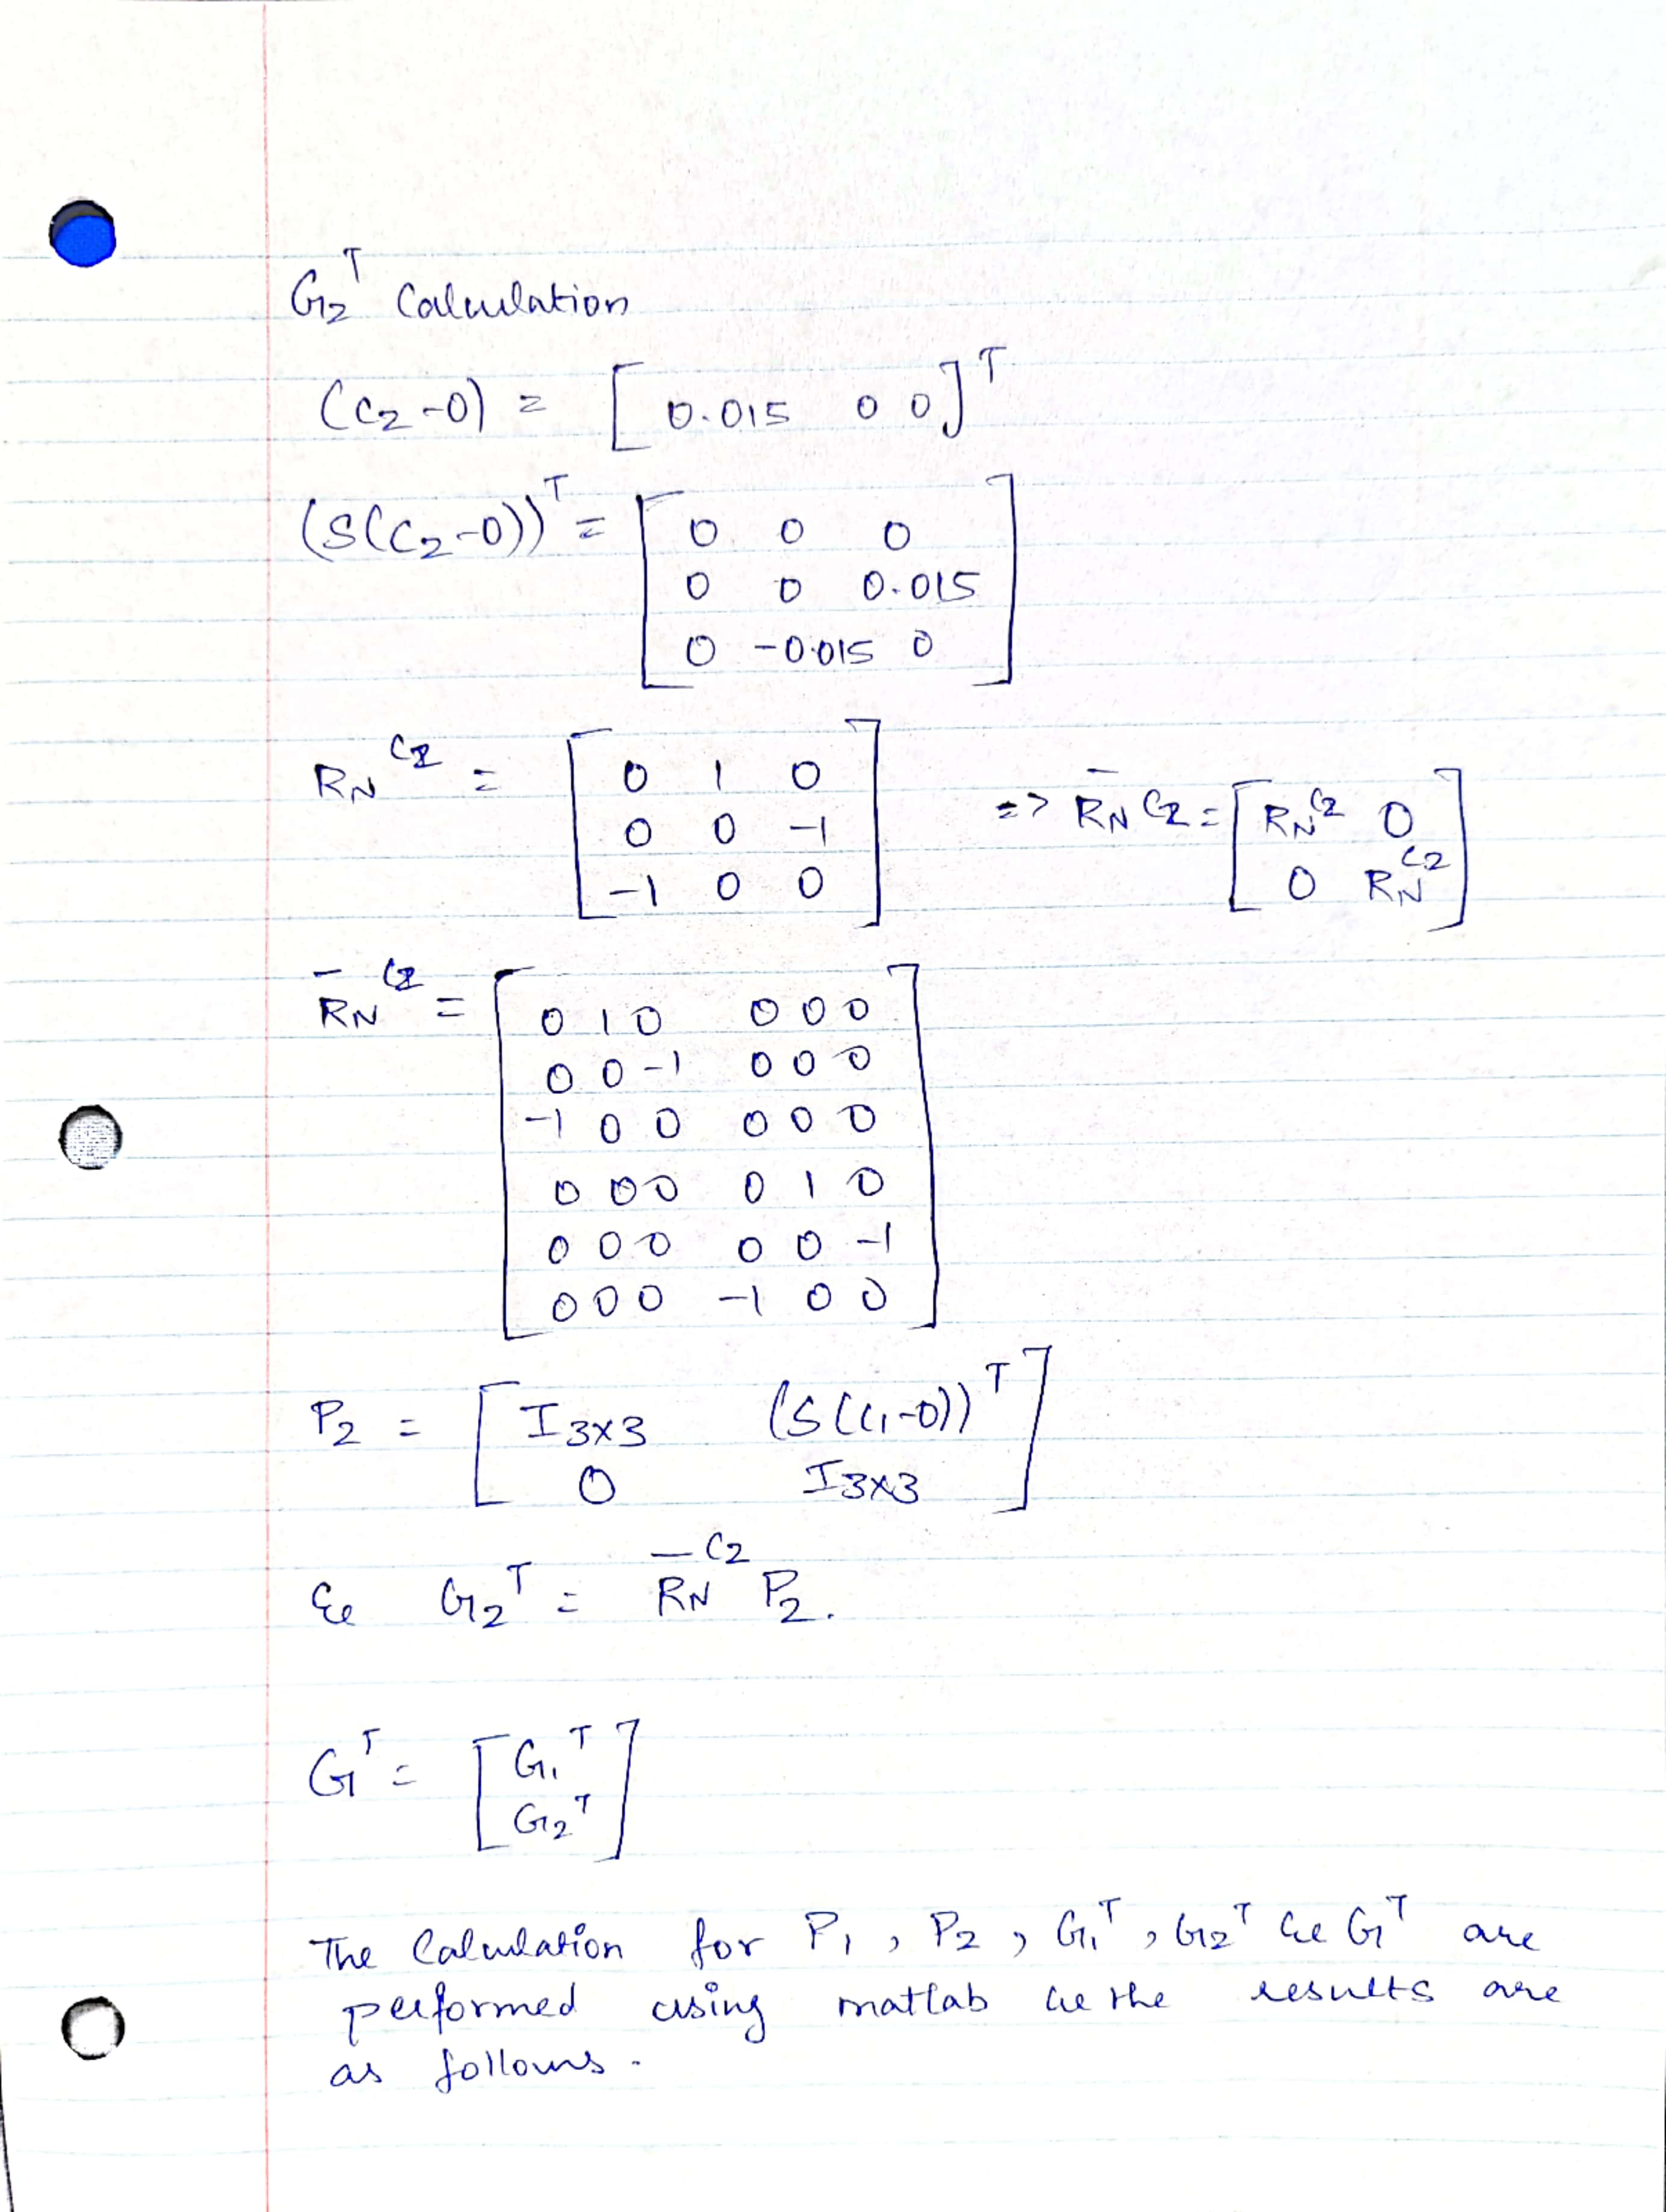 G₂ᵀ Calculation
(C₂-0) = [ 0.015 0 0 ]ᵀ
(S(C₂-0))ᵀ = [ 0 0 0
0 0 0.015
0 -0.015 0 ]
R_N^C2 = [ 0 1 0
0 0 -1
-1 0 0 ] => R̄_N C2 = [ R_N^C2 0
0 R_N^C2 ]
R̄_N^C2 = [ 0 1 0 0 0 0
0 0 -1 0 0 0
-1 0 0 0 0 0
0 0 0 0 1 0
0 0 0 0 0 -1
0 0 0 -1 0 0 ]
P₂ = [ I3x3 (S(C₁-0))ᵀ
0 I3x3 ]
& G₂ᵀ = R̄_N^C2 P₂.
Gᵀ = [ G₁ᵀ
G₂ᵀ ]
The Calculation for P₁, P₂, G₁ᵀ, G₂ᵀ & Gᵀ are
performed using matlab & the results are
as follows.